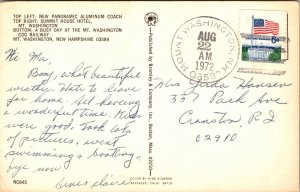 TOP LEFT: NEW PANORAMIC ALUMINUM COACH
TOP RIGHT: SUMMIT HOUSE HOTEL,
MT. WASHINGTON
BOTTOM: A BUSY DAY AT THE MT. WASHINGTON
COG RAILWAY
MT. WASHINGTON, NEW HAMPSHIRE 03589
MOUNT WASHINGTON, N.H.
AUG
22
AM
1972
03589
Hi Ma,
Boy, what beautiful
weather. Hate to leave
for home. All having
a wonderful time. Kids
were good. Took lots
of pictures, went
swimming & boating.
Bye now
Gene & Claire
Mrs. Freda Hansen
357 Park Ave
Cranston, R.I
02910
NC845
COLOR BY MIKE ROBERTS
BERKELEY, CALIF. 94710